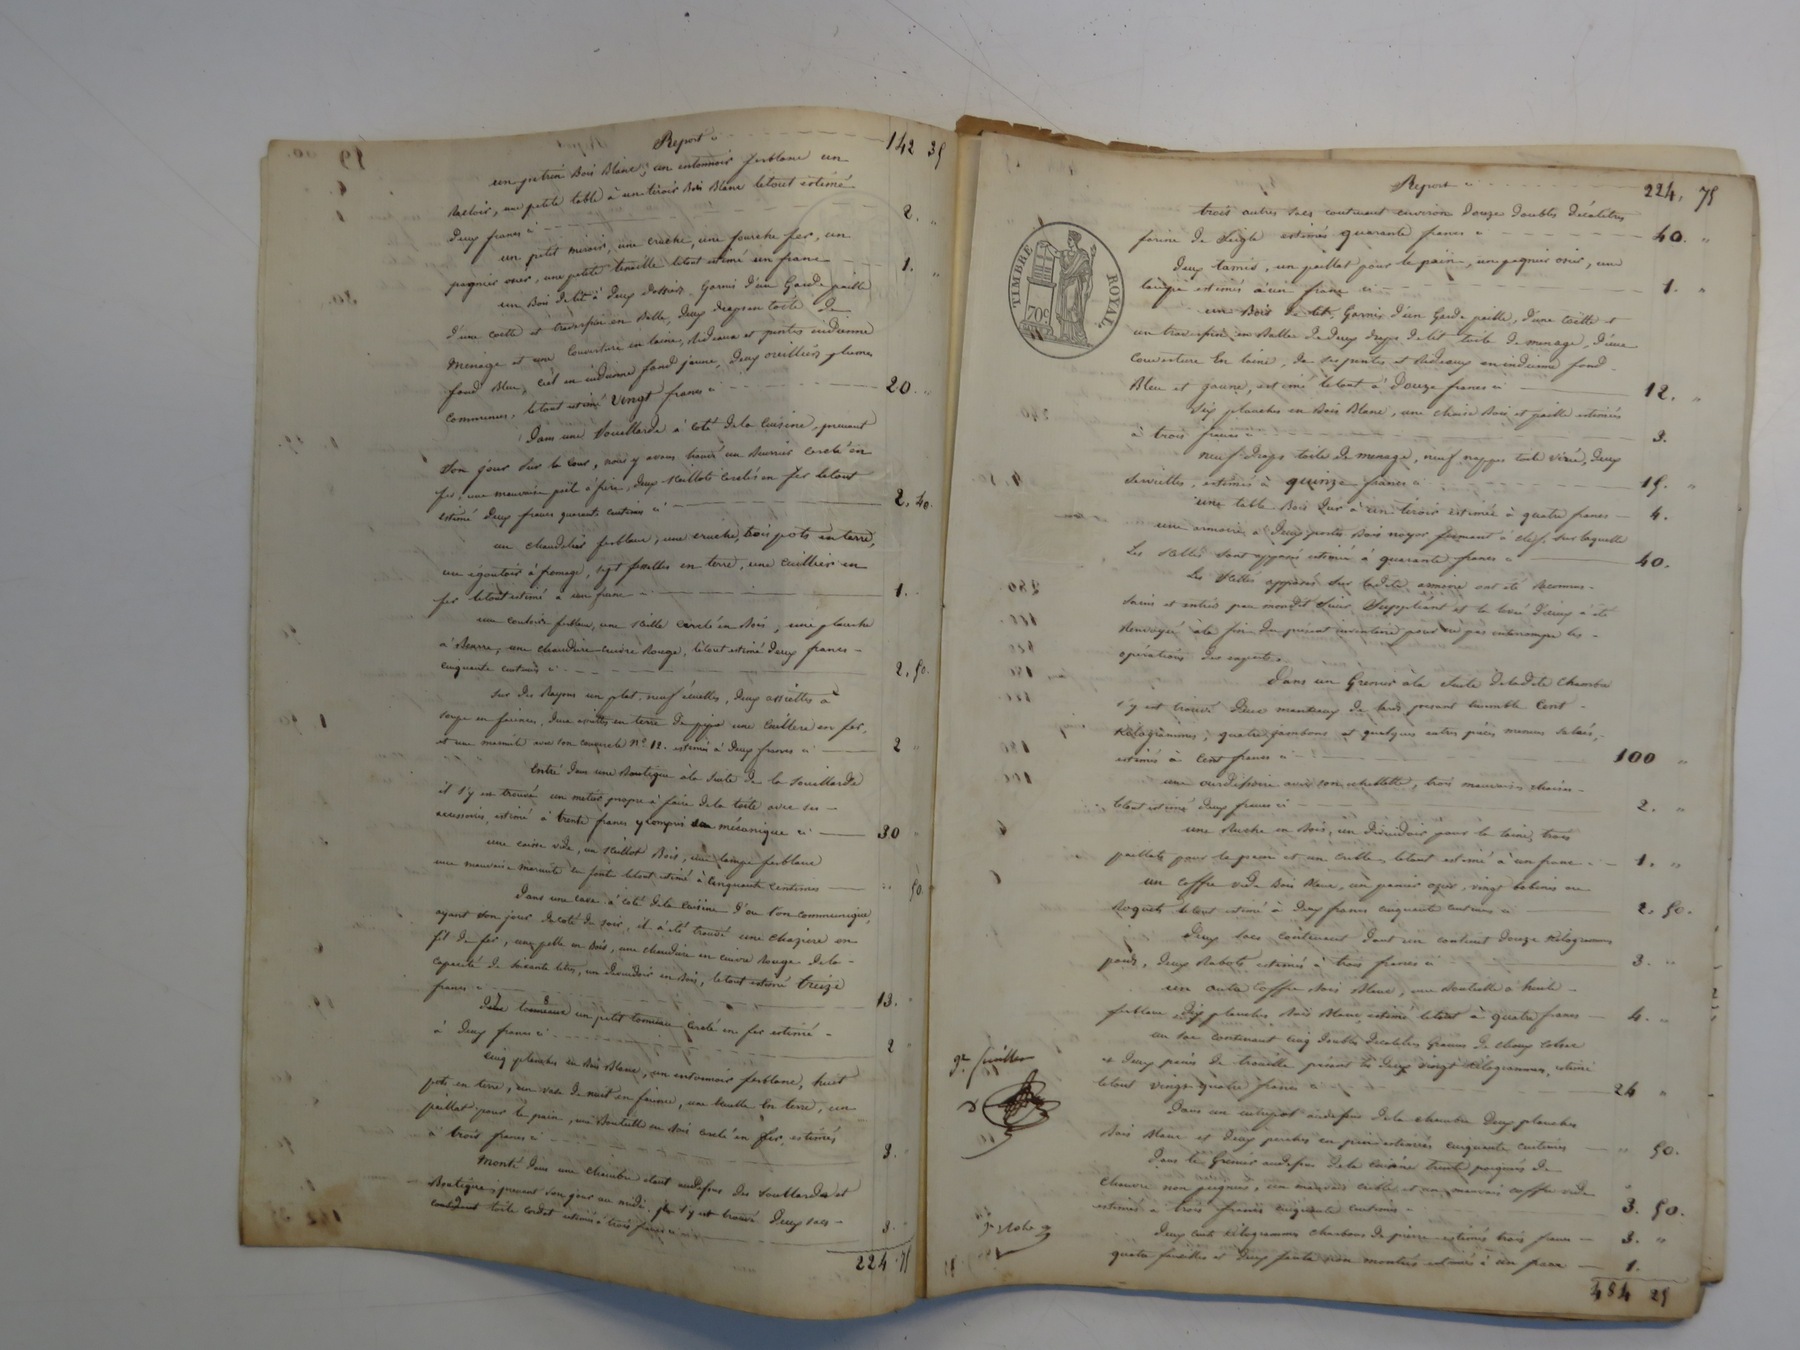 Report ci 142 35
un petrin Bois Blanc, un entonnoir ferblanc un
racloir, une petite table à un tiroir Bois Blanc letout estimé
deux francs ci 2. "
un petit miroir, une cruche, une fourche fer, un
pagnier osier, une petite tenaille letout estimé un franc 1. "
un Bois delit à deux dossiers garni d'un Garde paille
d'une coette et traversin en Balle, deux draps en toile de
menage et une Couverture en laine, Rideaux et pentes indienne
fond Bleu, ciel en indienne fond jaune, deux oreillers plumes
communes, letout estimé vingt francs ci 20. "
Dans une Souillarde à coté dela Cuisine, prenant
son jour sur la Cour, nous y avons trouvé un cerclé en
fer, une mauvaise poële à frire, deux seillots cerclés en fer letout
estimé deux francs quarante centimes ci 2. 40.
un chandelier ferblanc, une cruche, trois pots en terre,
un égoutoir à fromage, sept en terre, une cuillier en
fer letout estimé a un franc 1.
une ferblanc, une seille cerclé en Bois, une planche
à Beurre, une chaudière cuivre Rouge, letout estimé deux francs
cinquante centimes ci 2, 50.
sur des Rayons un plat, neuf écuelles, deux assiettes à
soupe en faience, deux assiettes en terre de pipe une cuillere en fer,
et une marmite avec son couvercle N.º 12. estimé à deux francs ci 2 "
Entré dans une Boutique àla suite de la souillarde
il s'y est trouvé un metier propre à faire dela toile avec ses
accessoires, estimé à trente francs y compris sa mécanique ci 30 "
une caisse vide, un seillot Bois, une lampe ferblanc
une mauvaise marmite en fonte letout estimé à Cinquante Centimes " 50.
Dans une cave à coté dela Cuisine d'ou l'on communique,
ayant son jour ducoté du soir, il a été trouvé une chazière en
fil de fer, une pelle en Bois, une chaudière en cuivre Rouge dela
capacité de soixante litres, un devidoir en Bois, letout estimé treize
francs ci 13. "
un petit tonneau cerclé en fer estimé
à deux francs ci 2 "
cinq planches en Bois Blanc, un entonnoir ferblanc, huit
pots en terre, un vase de nuit en faience, une en terre, un
paillat pour le pain, une Bouteille en Bois cerclé en fer, estimés
à trois francs ci 3. "
Monté dans une chambre etant audessus des souillarde et
Boutique, prenant son jour au midi. il s'y est trouvé deux sacs
toile cordat estimés à trois francs ci 3. "
224. 75
Report ci 224. 75
TIMBRE ROYAL.
70c
trois autres sacs contenant environ douze doubles décalitres
farine de seigle estimés quarante francs ci 40. "
deux tamis, un paillat pour le pain, un pagnier osier, une
lampe estimés à un franc ci 1. "
un Bois de lit, Garni d'un Garde paille, d'une coette et
un traversin en Balle de deux draps delit toile de menage, d'une
couverture en laine, de ses pentes et Rideaux en indienne fond
Bleu et jaune, estimé letout à douze francs ci 12. "
six planches en Bois Blanc, une chaise Bois et paille estimées
à trois francs ci 3.
neuf draps toile de menage, neuf nappes toile deux
serviettes, estimés à quinze francs ci 15. "
une table Bois dur à un tiroir estimée à quatre francs 4.
une armoire à deux portes Bois noyer fermant à clef, sur laquelle
Les scellés sont apposés estimée à quarante francs ci 40.
Les scellés apposés sur ladite armoire ont été reconnus
sains et entiers par mondit sieur suppléant et la levé d'iceux à été
Renvoyée àla fin du présent inventaire pour ne pas interrompre les
opérations des experts.
Dans un Grenier àla suite deladite chambre
s'y est trouvé deux manteaux de lard pesant ensemble Cent
Kilogrammes, quatre jambons et quelques autres pièces menues salées,
estimés à Cent francs ci 100 "
une ourdissoire avec son echellette, trois mauvaises chaises
letout estimé deux francs ci 2. "
une Ruche en Bois, un devidoir pour la laine, trois
paillats pour le pain et un crible, letout estimé à un franc 1. "
un coffre vide Bois Blanc, un panier ozier, vingt bobines ou
Roquets letout estimé à deux francs cinquante centimes ci 2. 50.
deux sacs contenant dont un contient douze Kilogrammes
poids, deux Rabots estimés à trois francs ci 3. "
un autre Coffre Bois Blanc, une Bouteille à huile
ferblanc dix planches Bois Blanc, estimé letout à quatre francs 4. "
un sac contenant cinq double decalitres graines de choux Colsa
et deux pains de trouille pesant les deux vingt Kilogrammes, estimé
letout vingt quatre francs ci 24 "
Dans un entrepot audessus dela chambre deux planches
Bois Blanc et deux perches en estimées cinquante centimes " 50.
Dans le Grenier audessus dela Cuisine trente poignées de
chanvre non peignés, un mauvais crible et un mauvais coffre vide
estimés à trois francs cinquante centimes 3. 50.
deux cent Kilogrammes charbons de pierre estimés trois francs 3. "
quatre faucilles et deux non montées estimés à un franc 1.
484 25